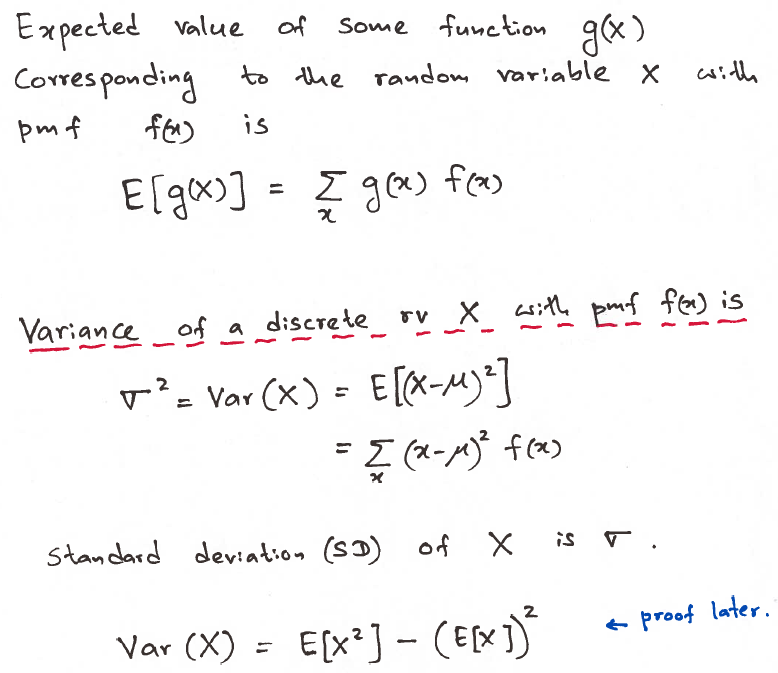 Expected value of some function g(x)
Corresponding to the random variable X with
pmf f(x) is
E[g(X)] = Σ_x g(x) f(x)
Variance of a discrete rv X with pmf f(x) is
σ² = Var(X) = E[(X-μ)²]
= Σ_x (x-μ)² f(x)
Standard deviation (SD) of X is σ.
Var(X) = E[X²] - (E[X])² ← proof later.